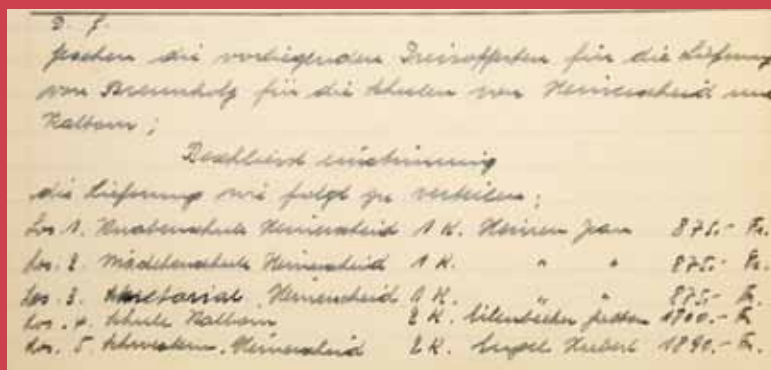 D. G.
Gesehen die vorliegenden Preisofferten für die Lieferung
von Brennholz für die Schulen von Heinerscheid und
Kalborn;
Beschliesst einstimmig
die Lieferung wie folgt zu verteilen:
Los 1. Knabenschule Heinerscheid 1 K. Heinen Jean 875.- Fr.
Los. 2. Mädchenschule Heinerscheid 1 K. " " 875.- Fr.
Los. 3. Sekretariat, Heinerscheid 1 K. " " 875.- Fr.
Los. 4. Schule Kalborn 2 K. 1800.- Fr.
Los. 5. Schwestern, Heinerscheid 2 K. Hubert 1890.- Fr.